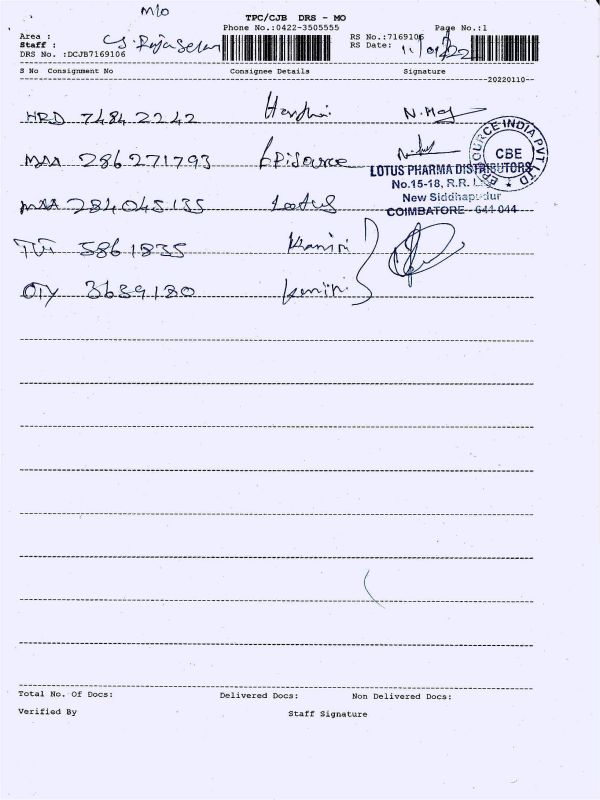 M/O
TPC/CJB DRS - MO
Phone No.:0422-3505555
Page No.:1
Area :
RS No.:7169106
Staff :
RS Date: 11/01/22
DRS No. :DCJB7169106
S No Consignment No Consignee Details Signature
--20220110--
HRD 74842242
MAA 286271793 Episource
MAA 284045135 Lotus
TUT 5861835
OTY 3659180
EPISOURCE INDIA PVT LTD
CBE
LOTUS PHARMA DISTRIBUTORS
No.15-18, R.R. L
New Siddhapudur
COIMBATORE - 641 044
Total No. Of Docs: Delivered Docs: Non Delivered Docs:
Verified By Staff Signature